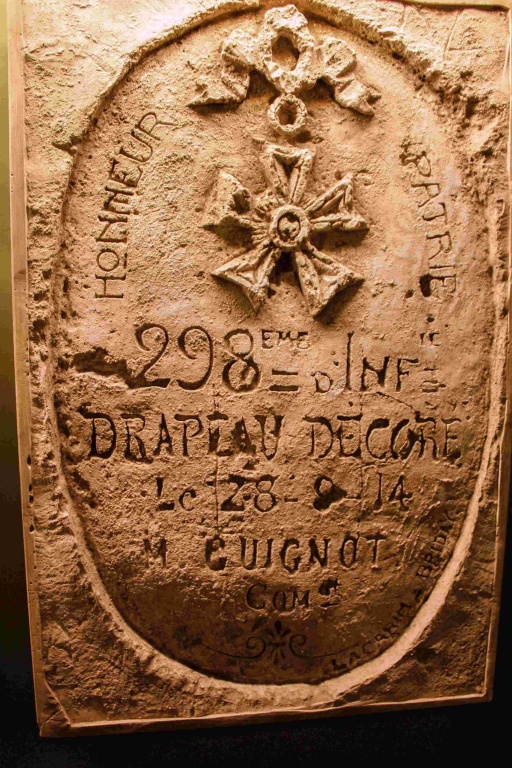 HONNEUR
PATRIE
298EME D'INF
DRAPEAU DÉCORÉ
Le 28-8-14
M. GUIGNOT
COMt